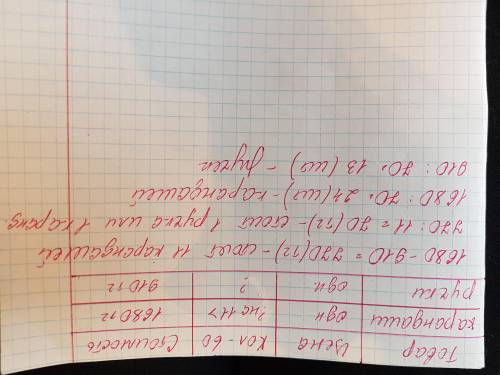 Товар Цена Кол-во Стоимость
карандаши одн ? на 11 > 1680 тг
ручки одн ? 910 тг
1680 - 910 = 770 (тг) - стоят 11 карандашей
770 : 11 = 70 (тг) - стоит 1 ручка или 1 каранд.
1680 : 70 = 24 (шт) - карандашей
910 : 70 = 13 (шт) - ручек